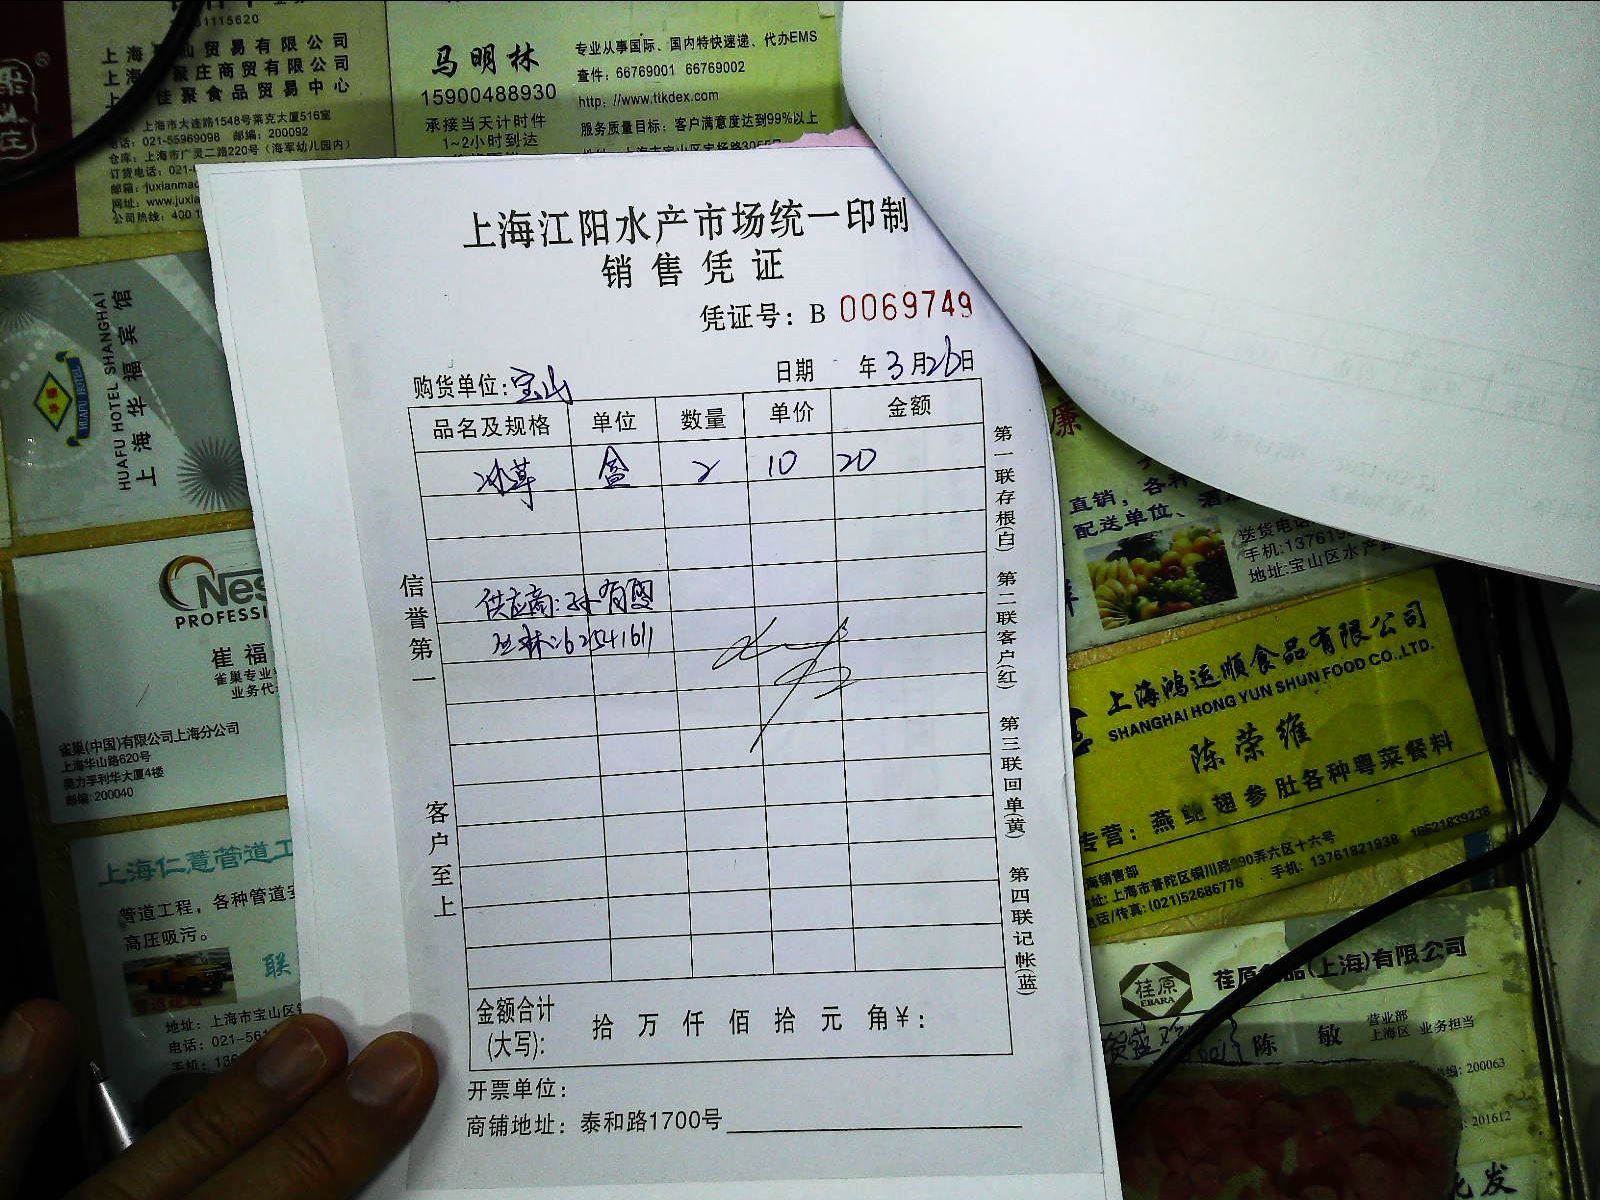 31115620
贸易有限公司
聚庄商贸有限公司
佳聚食品贸易中心
上海市大连路1548号莱克大厦516室
电话：021-55969098 邮编：200092
仓库：上海市广灵二路220号（海军幼儿园内）
订货电话：021-
网址：www.juxia
公司热线：400 1
马明林
15900488930
承接当天计时件
1~2小时到达
专业从事国际、国内特快速递、代办EMS
查件：66769001 66769002
http：//www.ttkdex.com
服务质量目标：客户满意度达到99%以上
上海江阳水产市场统一印制
销售凭证
凭证号：B 0069749
购货单位：宝山
日期 年3月26日
品名及规格 单位 数量 单价 金额
冰草 盒 2 10 20
供应商：孙有
62541611
信誉第一
客户至上
第一联存根(白)
第二联客户(红)
第三联回单(黄)
第四联记帐(蓝)
金额合计
(大写)： 拾 万 仟 佰 拾 元 角￥：
开票单位：
商铺地址：泰和路1700号
上海华福宾馆
HUAFU HOTEL SHANGHAI
HUAFU HOTEL
Nes
PROFESSI
崔福
雀巢专业
业务代
雀巢(中国)有限公司上海分公司
上海华山路620号
美力亨利华大厦4楼
邮编：200040
上海仁薏管道工
管道工程，各种管道
高压吸污。
联
地址：上海市宝山区
电话：021-561
手机：
廉
直销，各种
配送单位、酒
送货电话
手机:13761
地址:宝山区水产
上海鸿运顺食品有限公司
SHANGHAI HONG YUN SHUN FOOD CO.,LTD.
陈荣维
专营：燕鲍翅参肚各种粤菜餐料
海销售部
地址：上海市普陀区铜川路890弄六区十六号
电话/传真：(021)52686778 手机：13761821938 18621839238
荏原
EBARA
荏原食品(上海)有限公司
陈敏
营业部
上海区 业务担当
邮编：200063
201612
批发